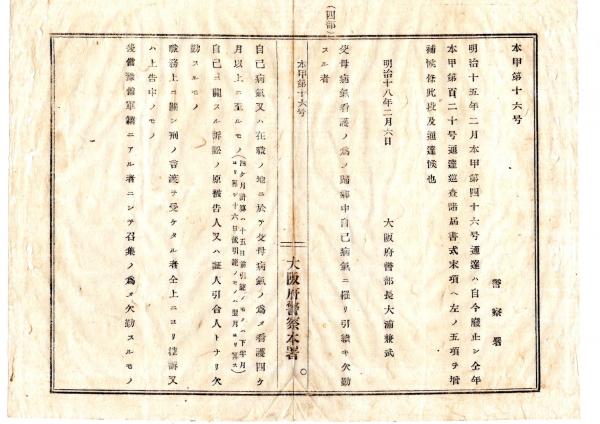 本甲第十六号
警察署
明治十五年二月本甲第四十六号通達ハ自今廢止シ仝年
本甲第百二十号通達巡査諸届書式末項ヘ左ノ五項ヲ増
補候条此段及通達候也
明治十八年二月六日
大阪府警部長大浦兼武
父母病氣看護ノ爲メ歸郷中自己病氣ニ罹リ引續キ欠勤
スル者
(四部)
本甲第十六号
大阪府警察本署
自己病氣又ハ在職ノ地ニ於テ父母病氣ノ爲メ看護四ケ
月以上ニ至ルモノ
自己ニ關スル訴訟ノ原被告人又ハ証人引合人トナリ欠
勤スルモノ
職務上ニ關シ刑ノ言渡ヲ受ケタル者仝上ニヨリ控訴又
ハ上告中ノモノ
後備豫備軍籍ニアル者ニシテ召集ノ爲メ欠勤スルモノ